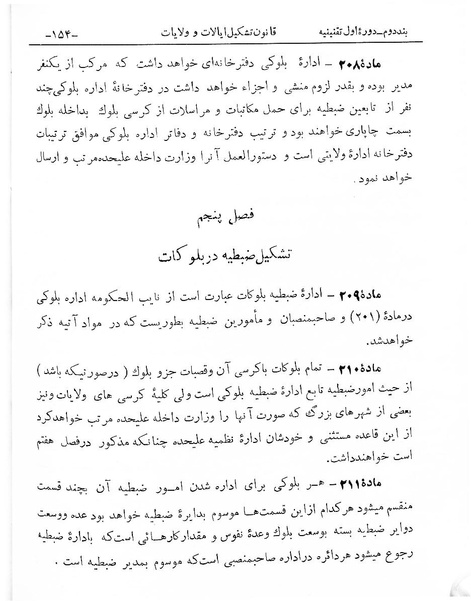 بند دوم ــ دورهٔ اول تقنینیه
قانون تشکیل ایالات و ولایات
-۱۵۴-
مادهٔ ۲۰۸ - ادارهٔ بلوکی دفترخانه‌ای خواهد داشت که مرکب از یکنفر
مدیر بوده و بقدر لزوم منشی و اجزاء خواهد داشت در دفترخانهٔ اداره بلوکی چند
نفر از تابعین ضبطیه برای حمل مکاتبات و مراسلات از کرسی بلوک بداخله بلوک
بسمت چاپاری خواهند بود و ترتیب دفترخانه و دفاتر اداره بلوکی موافق ترتیبات
دفترخانه ادارهٔ ولایتی است و دستورالعمل آنرا وزارت داخله علیحده مرتب و ارسال
خواهد نمود.
فصل پنجم
تشکیل ضبطیه در بلوکات
مادهٔ ۲۰۹ - ادارهٔ ضبطیه بلوکات عبارت است از نایب الحکومه اداره بلوکی
در مادهٔ (۲۰۱) و صاحبمنصبان و مأمورین ضبطیه بطوریست که در مواد آتیه ذکر
خواهد شد.
مادهٔ ۲۱۰ - تمام بلوکات با کرسی آن و قصبات جزو بلوک ( در صورتیکه باشد )
از حیث امور ضبطیه تابع ادارهٔ ضبطیه بلوکی است ولی کلیهٔ کرسی های ولایات و نیز
بعضی از شهرهای بزرگ که صورت آنها را وزارت داخله علیحده مرتب خواهد کرد
از این قاعده مستثنی و خودشان ادارهٔ نظمیه علیحده چنانکه مذکور در فصل هفتم
است خواهند داشت.
مادهٔ ۲۱۱ - هر بلوکی برای اداره شدن امور ضبطیه آن بچند قسمت
منقسم میشود هر کدام از این قسمت‌ها موسوم بدایرهٔ ضبطیه خواهد بود عده و وسعت
دوایر ضبطیه بسته بوسعت بلوک وعدهٔ نفوس و مقدار کارهائی است که بادارهٔ ضبطیه
رجوع میشود هر دائره در اداره صاحبمنصبی است که موسوم بمدیر ضبطیه است .